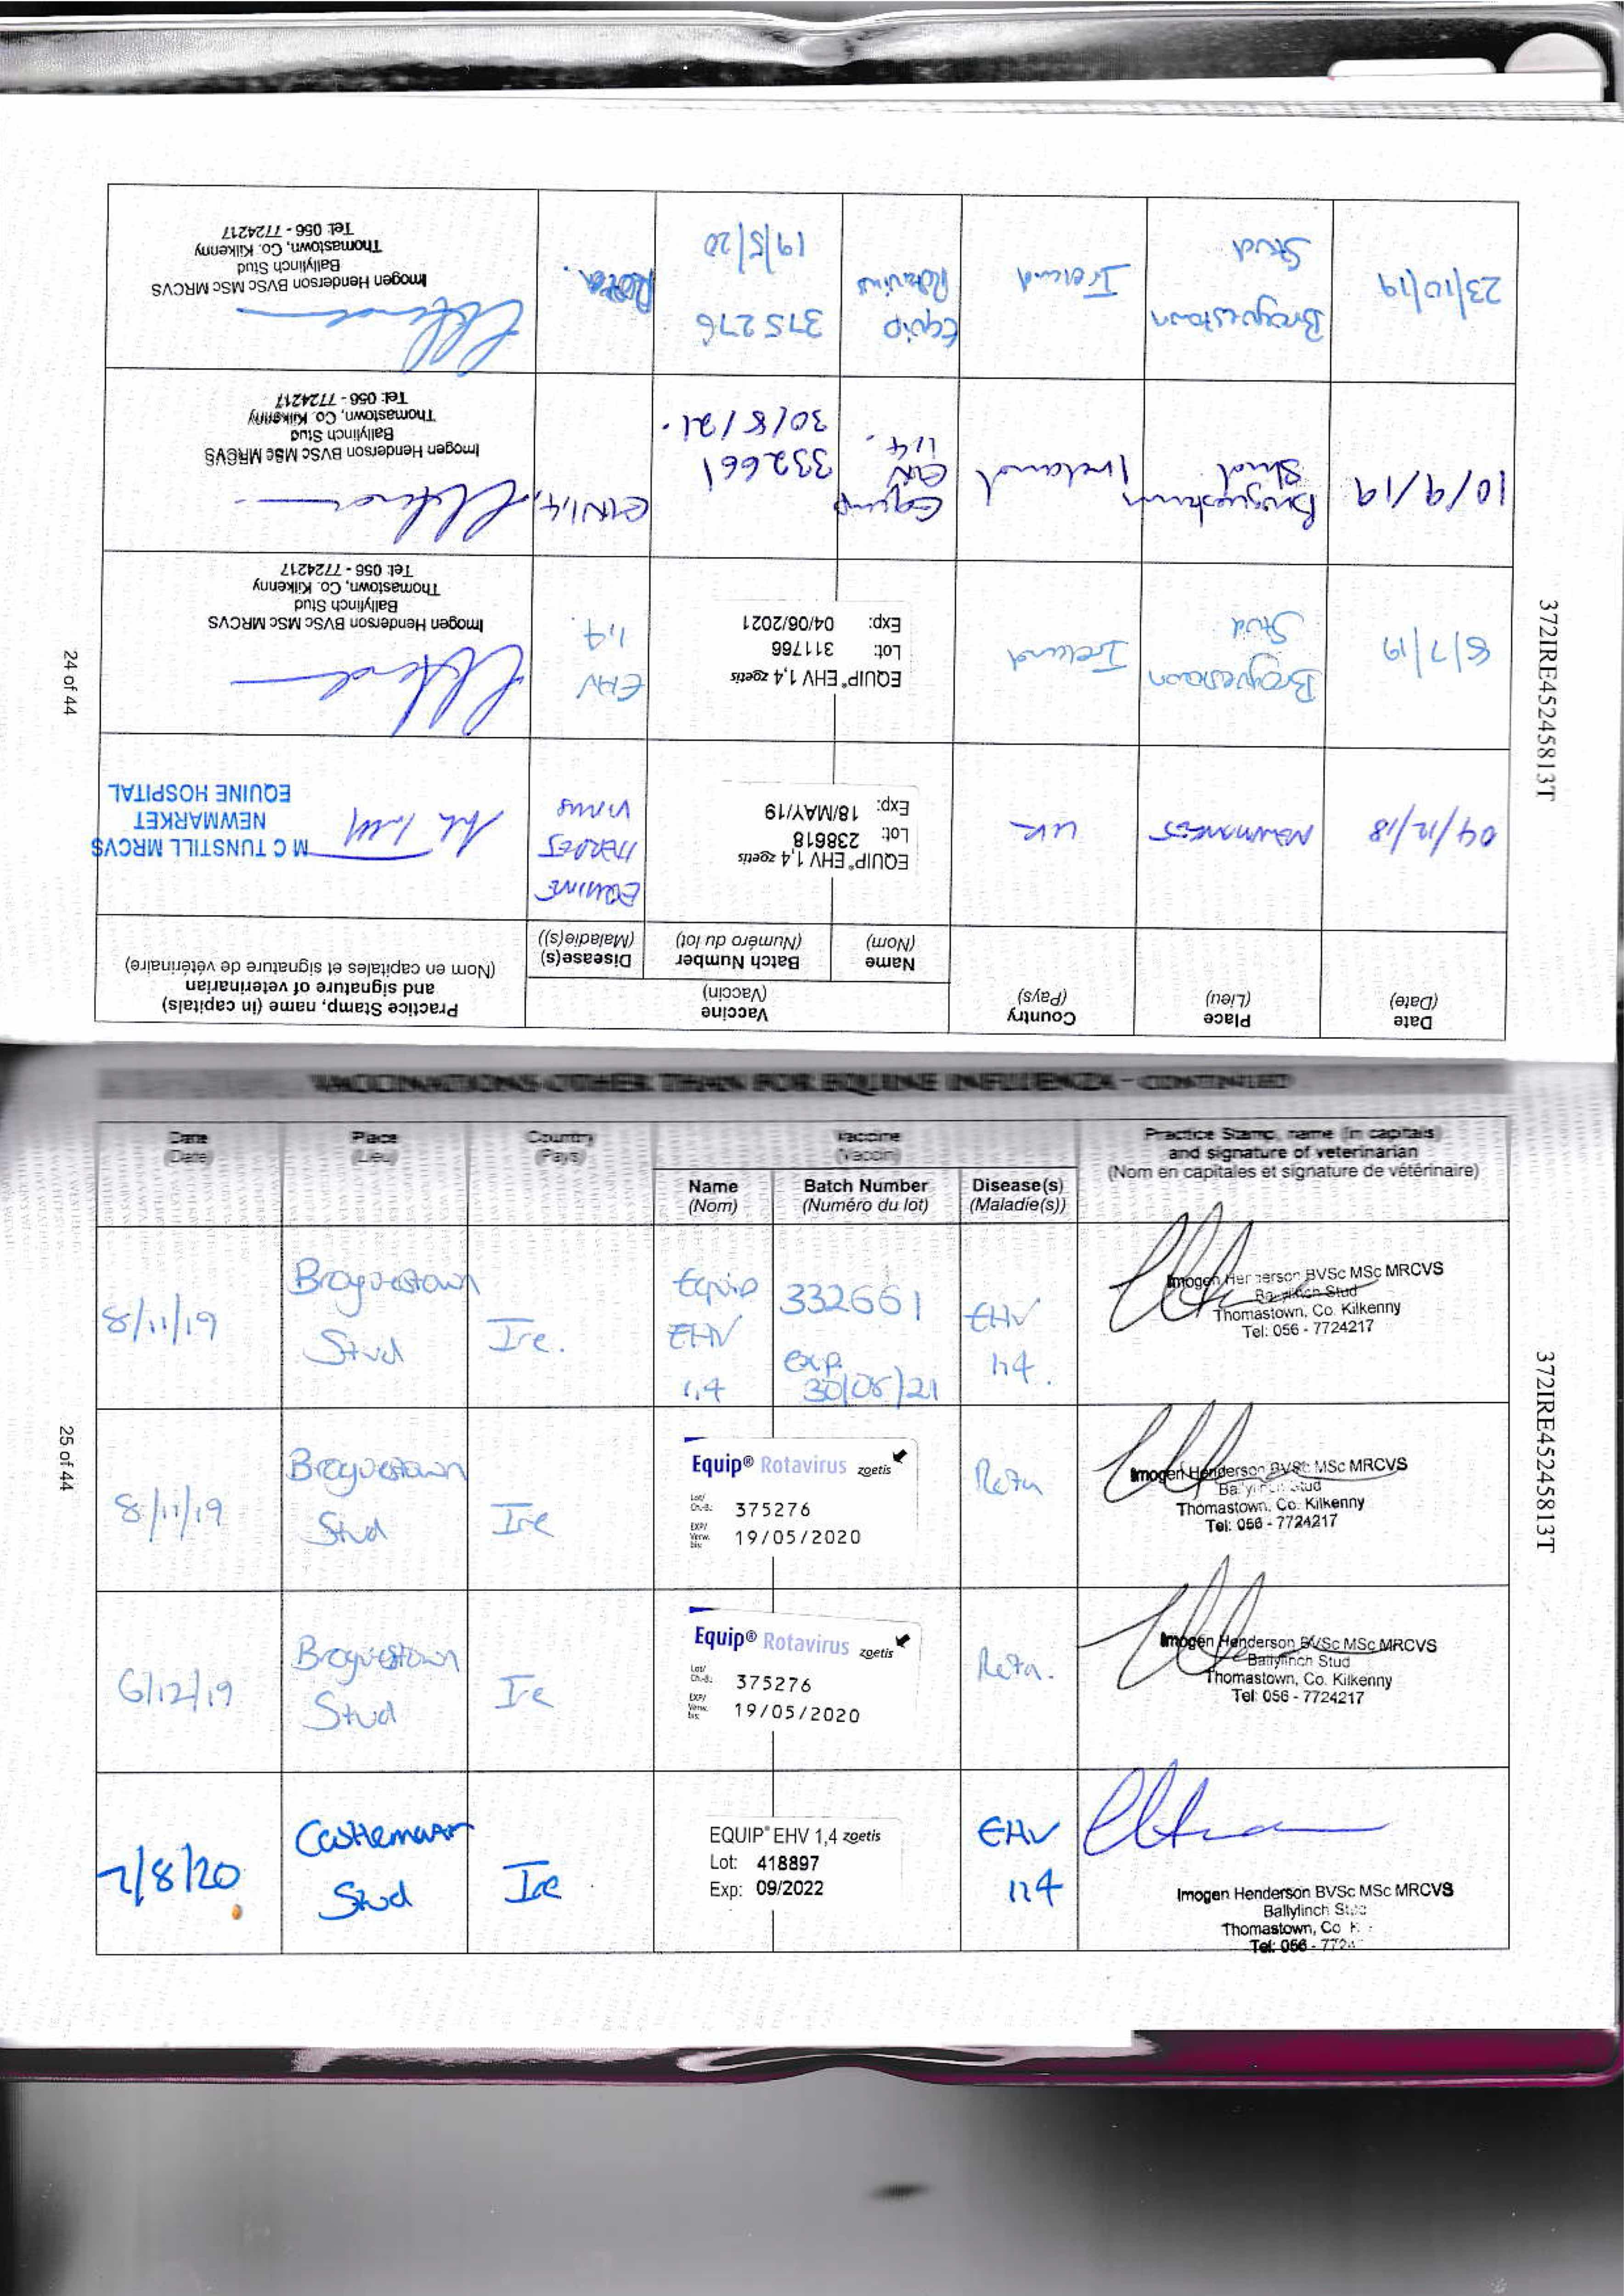 Date
(Date)
Place
(Lieu)
Country
(Pays)
Vaccine
(Vaccin)
Name
(Nom)
Batch Number
(Numéro du lot)
Disease(s)
(Maladie(s))
Practice Stamp, name (in capitals)
and signature of veterinarian
(Nom en capitales et signature de vétérinaire)
04/12/18
NEWMARKET
UK
EQUIP® EHV 1,4 zoetis
Lot: 238618
Exp: 18/MAY/19
EQUINE
HERPES
VIRUS
M C TUNSTILL MRCVS
NEWMARKET
EQUINE HOSPITAL
8/7/19
Broguestown
Stud
Ireland
EQUIP® EHV 1,4 zoetis
Lot: 311766
Exp: 04/06/2021
EHV
1,4.
Imogen Henderson BVSc MSc MRCVS
Ballylinch Stud
Thomastown, Co. Kilkenny
Tel: 056 - 7724217
10/9/19
Broguestown
Stud
Ireland
Equip
1,4.
332661
30/8/21.
Imogen Henderson BVSc MSc MRCVS
Ballylinch Stud
Thomastown, Co. Kilkenny
Tel: 056 - 7724217
23/10/19
Broguestown
Stud
Ireland
Equip
Rotavirus
375276
19/5/20
Rota.
Imogen Henderson BVSc MSc MRCVS
Ballylinch Stud
Thomastown, Co. Kilkenny
Tel: 056 - 7724217
372IRE45245813T
24 of 44
VACCINATIONS OTHER THAN FOR EQUINE INFLUENZA - CONTINUED
Date
(Date)
Place
(Lieu)
Country
(Pays)
Vaccine
(Vaccin)
Name
(Nom)
Batch Number
(Numéro du lot)
Disease(s)
(Maladie(s))
Practice Stamp, name (in capitals)
and signature of veterinarian
(Nom en capitales et signature de vétérinaire)
8/11/19
Broguestown
Stud
Ire.
Equip
EHV
1,4
332661
exp.
30/08/21
EHV
1,4.
Imogen Henderson BVSc MSc MRCVS
Ballylinch Stud
Thomastown, Co. Kilkenny
Tel: 056 - 7724217
8/11/19
Broguestown
Stud
Ire
Equip® Rotavirus zoetis
Lot/
Ch.-B.: 375276
EXP/
Verw.
bis: 19/05/2020
Rota
Imogen Henderson BVSc MSc MRCVS
Ballylinch Stud
Thomastown, Co. Kilkenny
Tel: 056 - 7724217
6/12/19
Broguestown
Stud
Ire
Equip® Rotavirus zoetis
Lot/
Ch.-B.: 375276
EXP/
Verw.
bis: 19/05/2020
Rota.
Imogen Henderson BVSc MSc MRCVS
Ballylinch Stud
Thomastown, Co. Kilkenny
Tel: 056 - 7724217
7/8/20
Castlemartin
Stud
Ire
EQUIP® EHV 1,4 zoetis
Lot: 418897
Exp: 09/2022
EHV
1,4
Imogen Henderson BVSc MSc MRCVS
Ballylinch Stud
Thomastown, Co K
Tel: 056 - 772
372IRE45245813T
25 of 44